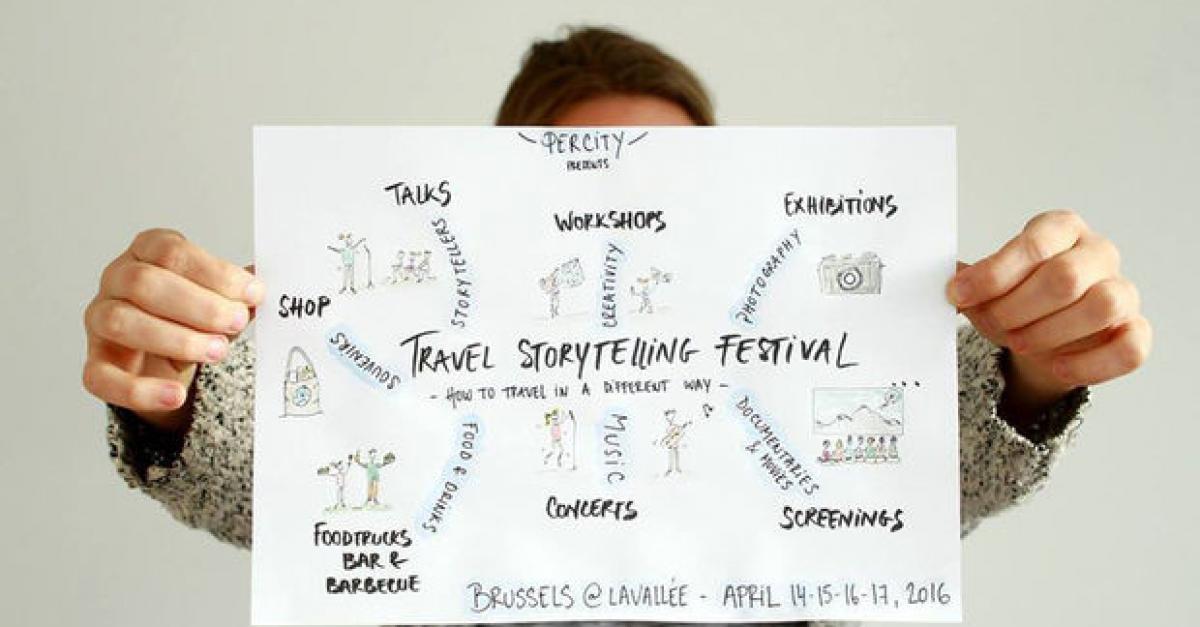 PERCITY
PRESENTS
TALKS
STORYTELLERS
WORKSHOPS
CREATIVITY
EXHIBITIONS
PHOTOGRAPHY
SHOP
SOUVENIRS
TRAVEL STORYTELLING FESTIVAL
- HOW TO TRAVEL IN A DIFFERENT WAY -
FOOD & DRINKS
MUSIC
DOCUMENTARIES
& MOVIES
FOODTRUCKS
BAR &
BARBECUE
CONCERTS
SCREENINGS
BRUSSELS @ LAVALLÉE - APRIL 14-15-16-17, 2016